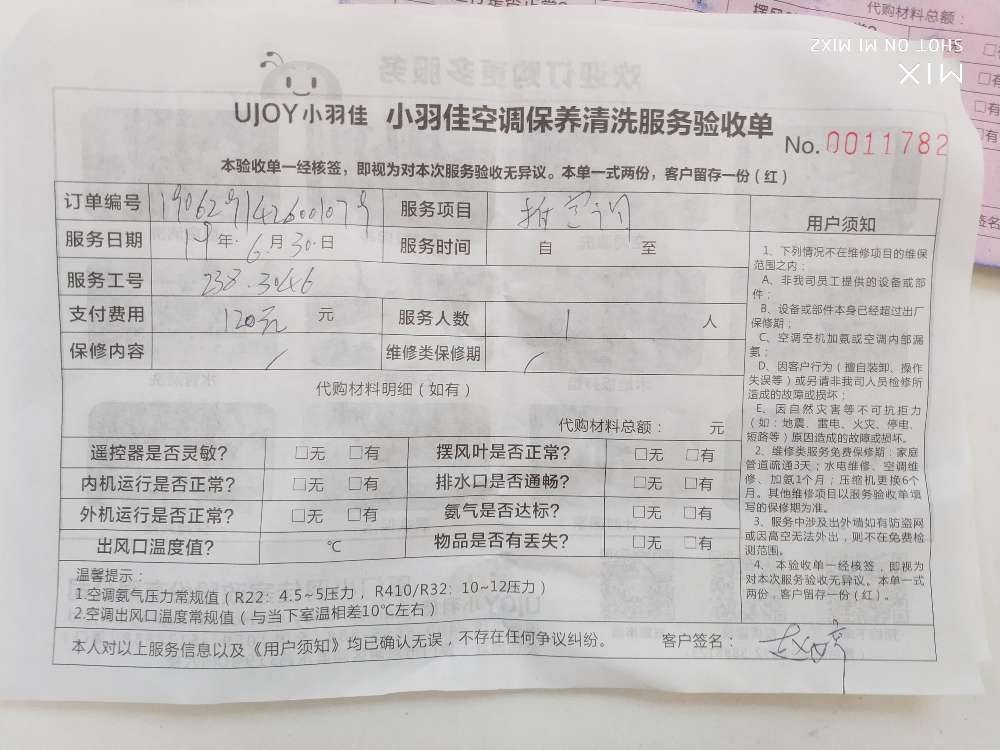 代购材料总额：
SHOT ON MI MIX2
MIX
UJOY小羽佳 小羽佳空调保养清洗服务验收单
No. 0011782
本验收单一经核签，即视为对本次服务验收无异议。本单一式两份，客户留存一份（红）
订单编号 1906291426001079 服务项目
服务日期 19年6月30日 服务时间 自 至
服务工号 238.3046
支付费用 120元 元 服务人数 1 人
保修内容 / 维修类保修期 /
代购材料明细（如有）
代购材料总额： 元
遥控器是否灵敏？ □无 □有 摆风叶是否正常？ □无 □有
内机运行是否正常？ □无 □有 排水口是否通畅？ □无 □有
外机运行是否正常？ □无 □有 氨气是否达标？ □无 □有
出风口温度值？ ℃ 物品是否有丢失？ □无 □有
温馨提示：
1.空调氨气压力常规值（R22：4.5~5压力，R410/R32：10~12压力）
2.空调出风口温度常规值（与当下室温相差10℃左右）
用户须知
1、下列情况不在维修项目的维保
范围之内：
A、非我司员工提供的设备或部
件；
B、设备或部件本身已经超过出厂
保修期；
C、空调空机加氨或空调内部漏
氨；
D、因客户行为（擅自装卸、操作
失误等）或另请非我司人员检修所
造成的故障或损坏；
E、因自然灾害等不可抗拒力
（如：地震、雷电、火灾、停电、
短路等）原因造成的故障或损坏。
2、维修类服务免费保修期：家庭
管道疏通3天；水电维修、空调维
修、加氨1个月；压缩机更换6个
月。其他维修项目以服务验收单填
写的保修期为准。
3、服务中涉及出外墙如有防盗网
或因高空无法外出，则不在免费检
测范围。
4、本验收单一经核签，即视为
对本次服务验收无异议。本单一式
两份，客户留存一份（红）。
本人对以上服务信息以及《用户须知》均已确认无误，不存在任何争议纠纷。 客户签名：